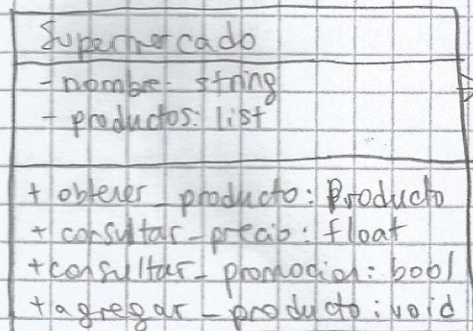 Supermercado
- nombre: string
- productos: list
+ obtener_producto: Producto
+ consultar_precio: float
+ consultar_promocion: bool
+ agregar_producto: void